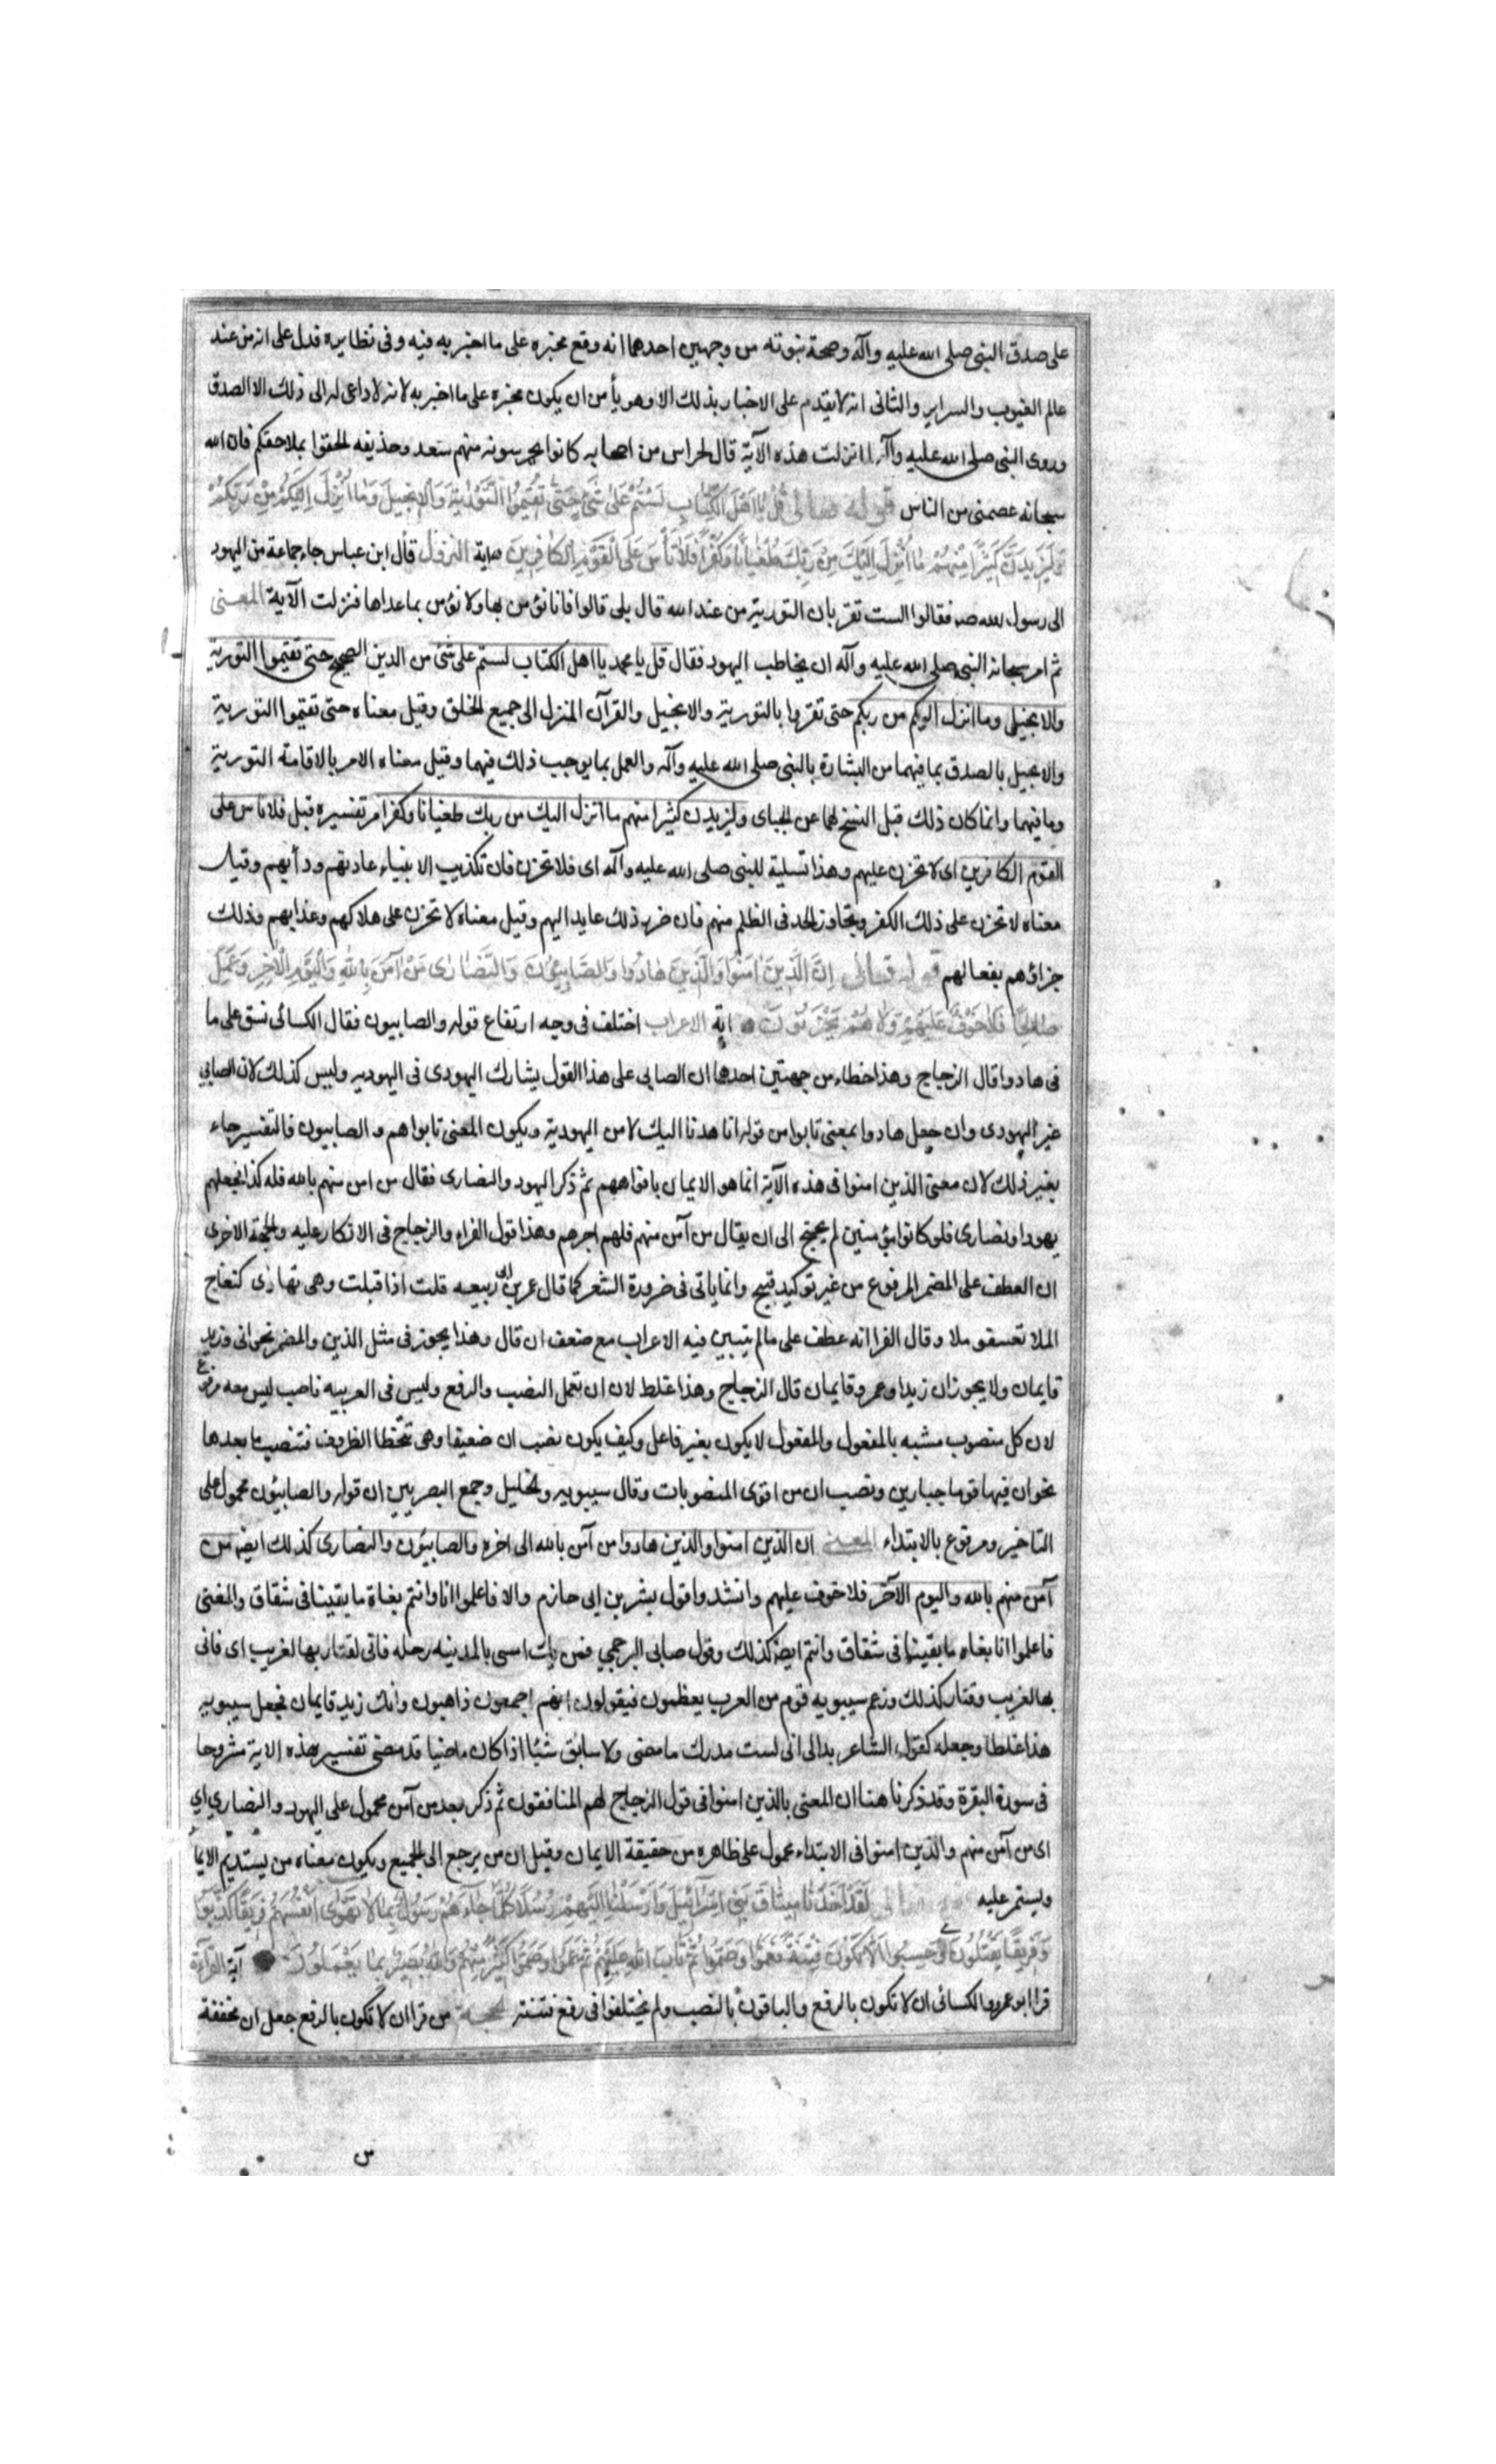 على صدق النبى صلى الله عليه وآله وصحة نبوته من وجهين احدهما انه وقع مخبره على ما اخبر به فيه وفى نظايره فدل على انه من عند
عالم الغيوب والسراير والثانى انه لا يقدم على الاخبار بذلك الا وهو يأمن ان يكون مخبره على ما اخبر به لانه لا داعى له الى ذلك الا الصدق
وروى النبى صلى الله عليه وآله لما نزلت هذه الآية قال لحراس من اصحابه كانوا يحرسونه منهم سعد وحذيفه الحقوا بملاحقكم فان الله
سبحانه عصمنى من الناس قوله تعالى قُلْ يَا اَهْلَ الْكِتَابِ لَسْتُمْ عَلٰى شَىْءٍ حَتّٰى تُقِيمُوا التَّوْرٰيةَ وَالْاِنْجِيلَ وَمَا اُنْزِلَ اِلَيْكُمْ مِنْ رَبِّكُمْ
وَلَيَزِيدَنَّ كَثِيرًا مِنْهُمْ مَا اُنْزِلَ اِلَيْكَ مِنْ رَبِّكَ طُغْيَانًا وَكُفْرًا فَلَا تَأْسَ عَلَى الْقَوْمِ الْكَافِرِينَ اية النزول قال ابن عباس جاء جماعة من اليهود
الى رسول الله صه فقالوا الست تقر بان التورية من عند الله قال بلى قالوا فانا نؤمن بها ولا نؤمن بماعداها فنزلت الآية المعنى
ثم امر سبحانه النبى صلى الله عليه وآله ان يخاطب اليهود فقال قل يا محمد يا اهل الكتاب لستم على شئ من الدين الصحيح حتى تقيموا التورية
والانجيل وما انزل اليكم من ربكم حتى تقروا بالتورية والانجيل والقرآن المنزل الى جميع الخلق وقيل معناه حتى تقيموا التورية
والانجيل بالصدق بما فيهما من البشارة بالنبى صلى الله عليه وآله والعمل بما يوجب ذلك فيهما وقيل معناه الامر بالاقامة التورية
وما فيهما وانما كان ذلك قبل النسخ لهما عن الجباى وليزيدن كثيرا منهم ما انزل اليك من ربك طغيانا وكفرا مر تفسيره قبل فلا تاس على
القوم الكافرين اى لا تحزن عليهم وهذا تسلية للنبى صلى الله عليه وآله اى فلا تحزن فان تكذيب الانبياء عادتهم ودأبهم وقيل
معناه لا تحزن على ذلك الكفر وتجاوز الحد فى الظلم منهم فان ضرر ذلك عايد اليهم وقيل معناه لا تحزن على هلاكهم وعذابهم فذلك
جزاؤهم بفعالهم قوله تعالى اِنَّ الَّذِينَ اٰمَنُوا وَالَّذِينَ هَادُوا وَالصَّابِئُونَ وَالنَّصَارٰى مَنْ آمَنَ بِاللهِ وَالْيَوْمِ الْاٰخِرِ وَعَمِلَ
صَالِحًا فَلَا خَوْفٌ عَلَيْهِمْ وَلَا هُمْ يَحْزَنُونَ اية الاعراب اختلف فى وجه ارتفاع قوله والصابيون فقال الكسائى نسق على ما
فى هادوا قال الزجاج وهذا خطاء من جهتين احدها ان الصابى على هذا القول يشارك اليهودى فى اليهوديه وليس كذلك لان الصابى
غير اليهودى وان جعل هادوا بمعنى تابوا من قوله انا هدنا اليك لا من اليهودية ويكون المعنى تابوا هم والصابيون فالتفسير جاء
بغير ذلك لان معنى الذين امنوا فى هذه الآية انما هو الايمان بافواههم ثم ذكر اليهود والنصارى فقال من امن منهم بالله فله كذا فجعلهم
يهودا ونصارى فلو كانوا مؤمنين لم يحتج الى ان يقال من آمن منهم فلهم اجرهم وهذا قول الفراء والزجاج فى الانكار عليه والجهة الاخرى
ان العطف على المضمر المرفوع من غير توكيد قبيح وانما ياتى فى ضرورة الشعر كما قال عمر بن ابى ربيعه قلت اذا قبلت وهى تهادى كنعاج
الملا تعسفو ملا وقال الفرا انه عطف على مالم يتبين فيه الاعراب مع ضعف ان قال وهذا يجوز فى مثل الذين والمضمر نحو انى وزيد
قايمان ولا يجوز ان زيدا وعمرو قايمان قال الزجاج وهذا غلط لان ان تعمل النصب والرفع وليس فى العربيه ناصب ليس معه مرفوع
لان كل منصوب مشبه بالمفعول والمفعول لا يكون بغير فاعل وكيف يكون نصب ان ضعيفا وهى تتخطا الظروف فتنصب ما بعدها
نحو ان فيها قوما جبارين ونصب ان من اقوى المنصوبات وقال سيبويه والخليل وجمع البصريين ان قوله والصابئون محمول على
التاخير ومرفوع بالابتداء المعنى ان الذين امنوا والذين هادوا من آمن بالله الى اخره والصابئون والنصارى كذلك ايضه من
آمن منهم بالله واليوم الآخر فلا خوف عليهم وانشدوا قول بشر بن ابى حازم والا فاعلموا انا وانتم بغاة ما بقينا فى شقاق والمعنى
فاعلموا انا بغاه ما بقينا فى شقاق وانتم ايضه كذلك وقول صابى البرجمى فمن يك امسى بالمدينه رحله فانى لقتار بها لغريب اى فانى
بها لغريب وقتار كذلك وزعم سيبويه قوم من العرب يغلطون فيقولون انهم اجمعون ذاهبون وانك زيد قايمان فجعل سيبويه
هذا غلطا وجعله كقول الشاعر بدالى انى لست مدرك ما مضى ولا سابق شيئا اذا كان ماضيا قد مضى تفسير هذه الاية مشروحا
فى سورة البقرة وقد ذكرنا هنا ان المعنى بالذين امنوا فى قول الزجاج لهم المنافقون ثم ذكر بعد من آمن محمول على اليهود والنصارى اى
اى من آمن منهم والذين امنوا فى الابتداء محمول على ظاهره من حقيقة الايمان وقيل ان من يرجع الى الجميع ويكون معناه من يستديم الايما
ويستمر عليه لَقَدْ اَخَذْنَا مِيثَاقَ بَنِى اِسْرَآئِيلَ وَاَرْسَلْنَا اِلَيْهِمْ رُسُلًا كُلَّمَا جَاءَهُمْ رَسُولٌ بِمَا لَا تَهْوٰى اَنْفُسُهُمْ فَرِيقًا كَذَّبُوا
وَفَرِيقًا يَقْتُلُونَ وَحَسِبُوا اَلَّا تَكُونَ فِتْنَةٌ فَعَمُوا وَصَمُّوا ثُمَّ تَابَ اللهُ عَلَيْهِمْ ثُمَّ عَمُوا وَصَمُّوا كَثِيرٌ مِنْهُمْ وَاللهُ بَصِيرٌ بِمَا يَعْمَلُونَ آية القرآءة
قرا ابو عمرو والكسائى ان لا تكون بالرفع والباقون بالنصب ولم يختلفوا فى رفع فتنة الحجة من قرا ان لا تكون بالرفع جعل ان مخففة
من